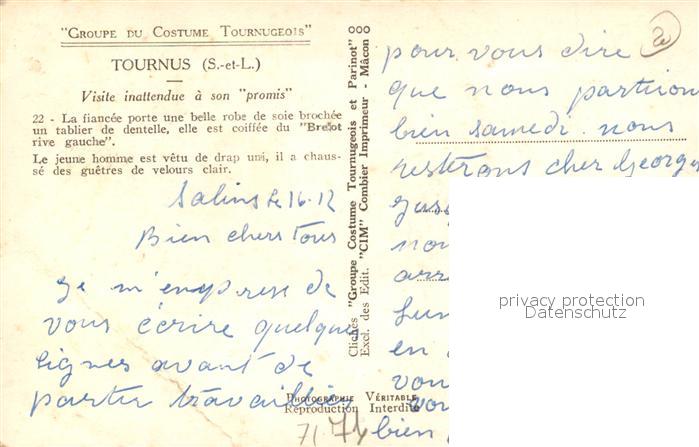 "Groupe du Costume Tournugeois"
TOURNUS (S.-et-L.)
Visite inattendue à son "promis"
22 - La fiancée porte une belle robe de soie brochée
un tablier de dentelle, elle est coiffée du "Bressot
rive gauche".
Le jeune homme est vêtu de drap uni, il a chaus-
sé des guêtres de velours clair.
Salins le 16.12
Bien chers tous
Je m'empresse de
vous écrire quelque
lignes avant de
partir travailler
Photographie Véritable
Reproduction Interdite
71.
74
Clichés "Groupe Costume Tournugeois et Parinot"
Excl. des Edit. "CIM" Combier Imprimeur - Mâcon
pour vous dire
que nous partions
bien samedi. nous
resterons cher Georges
jusq
nou
arr
Lun
en
vou
vou
bien
privacy protection
Datenschutz